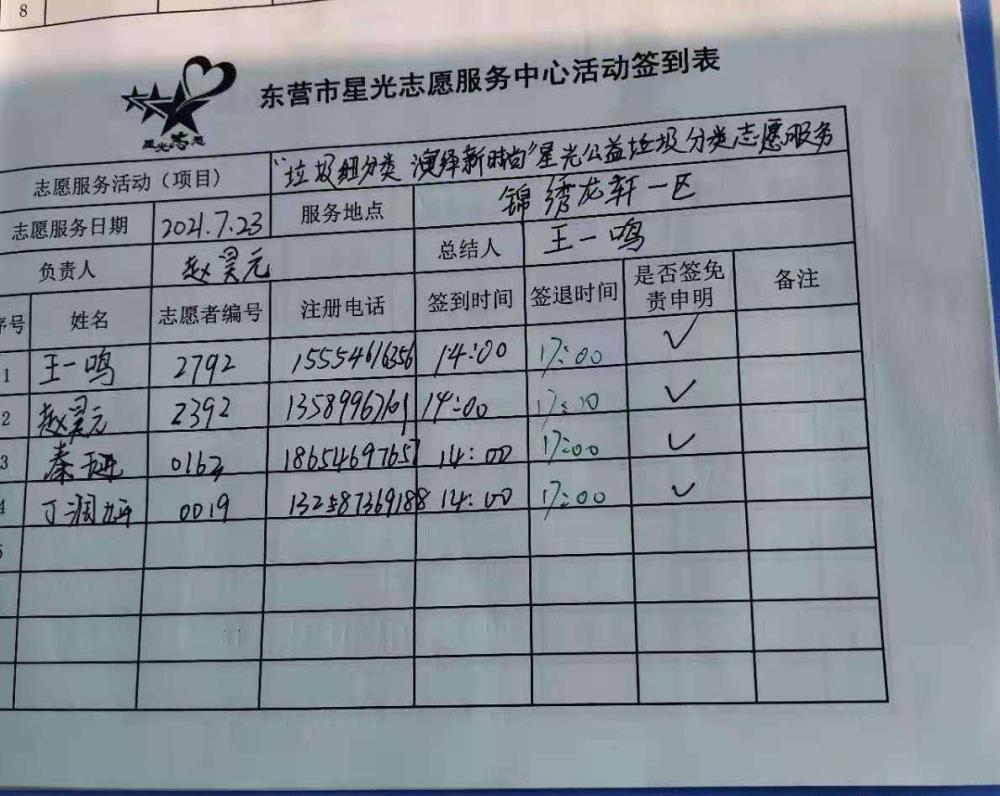 8
星光志愿
东营市星光志愿服务中心活动签到表
志愿服务活动（项目） "垃圾细分类 演绎新时尚"星光公益垃圾分类志愿服务
志愿服务日期 2021.7.23 服务地点 锦绣龙轩一区
负责人 赵昊元 总结人 王一鸣
序号 姓名 志愿者编号 注册电话 签到时间 签退时间 是否签免责申明 备注
1 王一鸣 2792 15554616356 14:00 17:00 ✓
2 赵昊元 2392 14:00 17:00 ✓
3 秦 0162 18654697657 14:00 17:00 ✓
4 丁润 0019 14:00 17:00 ✓
5